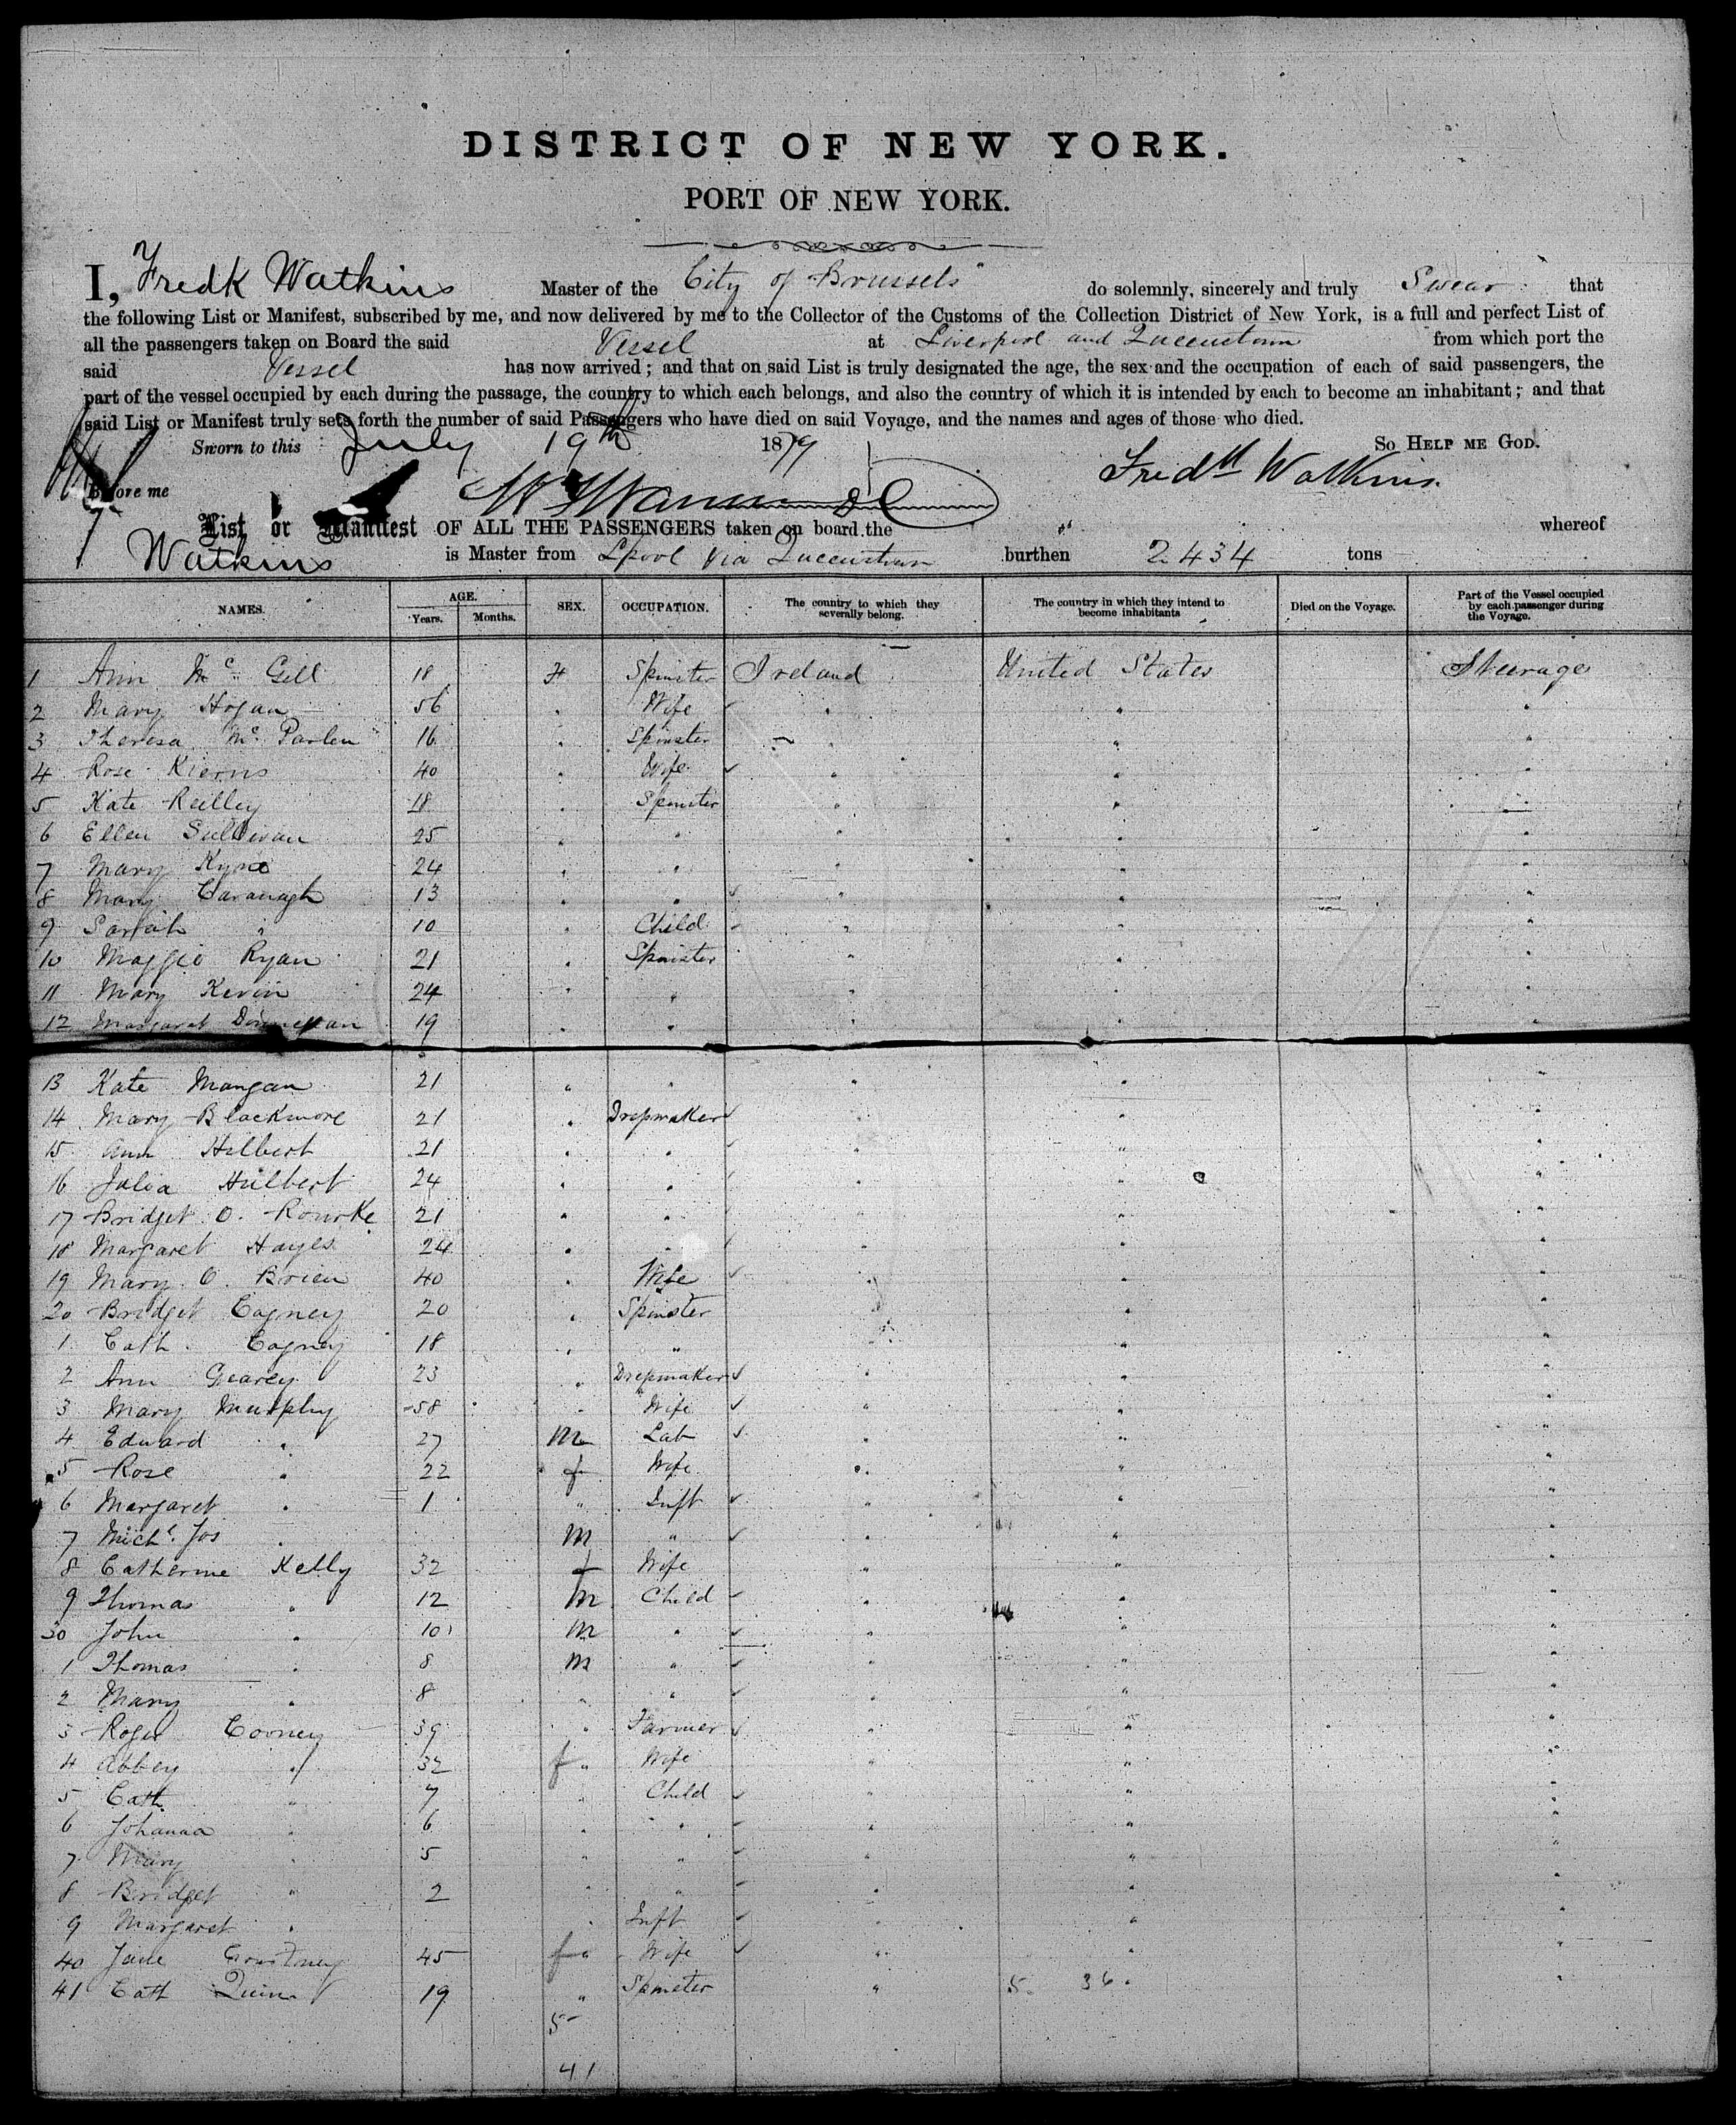 DISTRICT OF NEW YORK.
PORT OF NEW YORK.
I, Fredk Watkins Master of the "City of Brussels" do solemnly, sincerely and truly Swear that
the following List or Manifest, subscribed by me, and now delivered by me to the Collector of the Customs of the Collection District of New York, is a full and perfect List of
all the passengers taken on Board the said Vessel at Liverpool and Queenstown from which port the
said Vessel has now arrived; and that on said List is truly designated the age, the sex and the occupation of each of said passengers, the
part of the vessel occupied by each during the passage, the country to which each belongs, and also the country of which it is intended by each to become an inhabitant; and that
said List or Manifest truly sets forth the number of said Passengers who have died on said Voyage, and the names and ages of those who died.
Sworn to this July 19th 1879 So HELP ME GOD.
Before me Fredk Watkins.
List or Manifest OF ALL THE PASSENGERS taken on board the whereof
Watkins is Master from Lpool via Queenstown burthen 2434 tons
NAMES. AGE. Years. Months. SEX. OCCUPATION. The country to which they severally belong. The country in which they intend to become inhabitants Died on the Voyage. Part of the Vessel occupied by each passenger during the Voyage.
1 Ann Mc Gill 18 F Spinster Ireland United States Steerage
2 Mary Hogan 56 " Wife " " "
3 Theresa Mc Parlen 16 " Spinster " " "
4 Rose Kierns 40 " Wife " " "
5 Kate Reilley 18 " Spinster " " "
6 Ellen Sullivan 25 " " " " "
7 Mary Kyne 24 " " " " "
8 Mary Cavanagh 13 " " " " "
9 Sarah " 10 " Child " " "
10 Maggie Ryan 21 " Spinster " " "
11 Mary Kevin 24 " " " " "
12 Margaret 19 " " " " "
13 Kate Mangan 21 " " " " "
14 Mary Blackmore 21 " Dressmaker " " "
15 Ann Hilbert 21 " " " " "
16 Julia Hilbert 24 " " " " "
17 Bridget O. Rourke 21 " " " " "
18 Margaret Hayes 24 " " " " "
19 Mary O. Brien 40 " Wife " " "
20 Bridget Cagney 20 " Spinster " " "
1 Cath. Cagney 18 " " " "
2 Ann Gearey 23 " Dressmaker " " "
3 Mary Murphy 58 " Wife " " "
4 Edward " 27 m Lab " " "
5 Rose " 22 f Wife " " "
6 Margaret " 1 " Inft " " "
7 Michl. Jos " m " " " "
8 Catherine Kelly 32 f Wife " " "
9 Thomas " 12 m Child " " "
30 John " 10 m " " " "
1 Thomas " 8 m " " " "
2 Mary " 8 " " " " "
3 Roger Cooney 39 " Farmer " " "
4 Abbey " 32 f " Wife " " "
5 Cath " 7 " Child " " "
6 Johanna " 6 " " " " "
7 Mary " 5 " " " " "
8 Bridget " 2 " " " " "
9 Margaret " " Inft " " "
40 Jane Courtney 45 f " Wife " " "
41 Cath Quinn 19 " Spinster " 5. 36. "
5
41